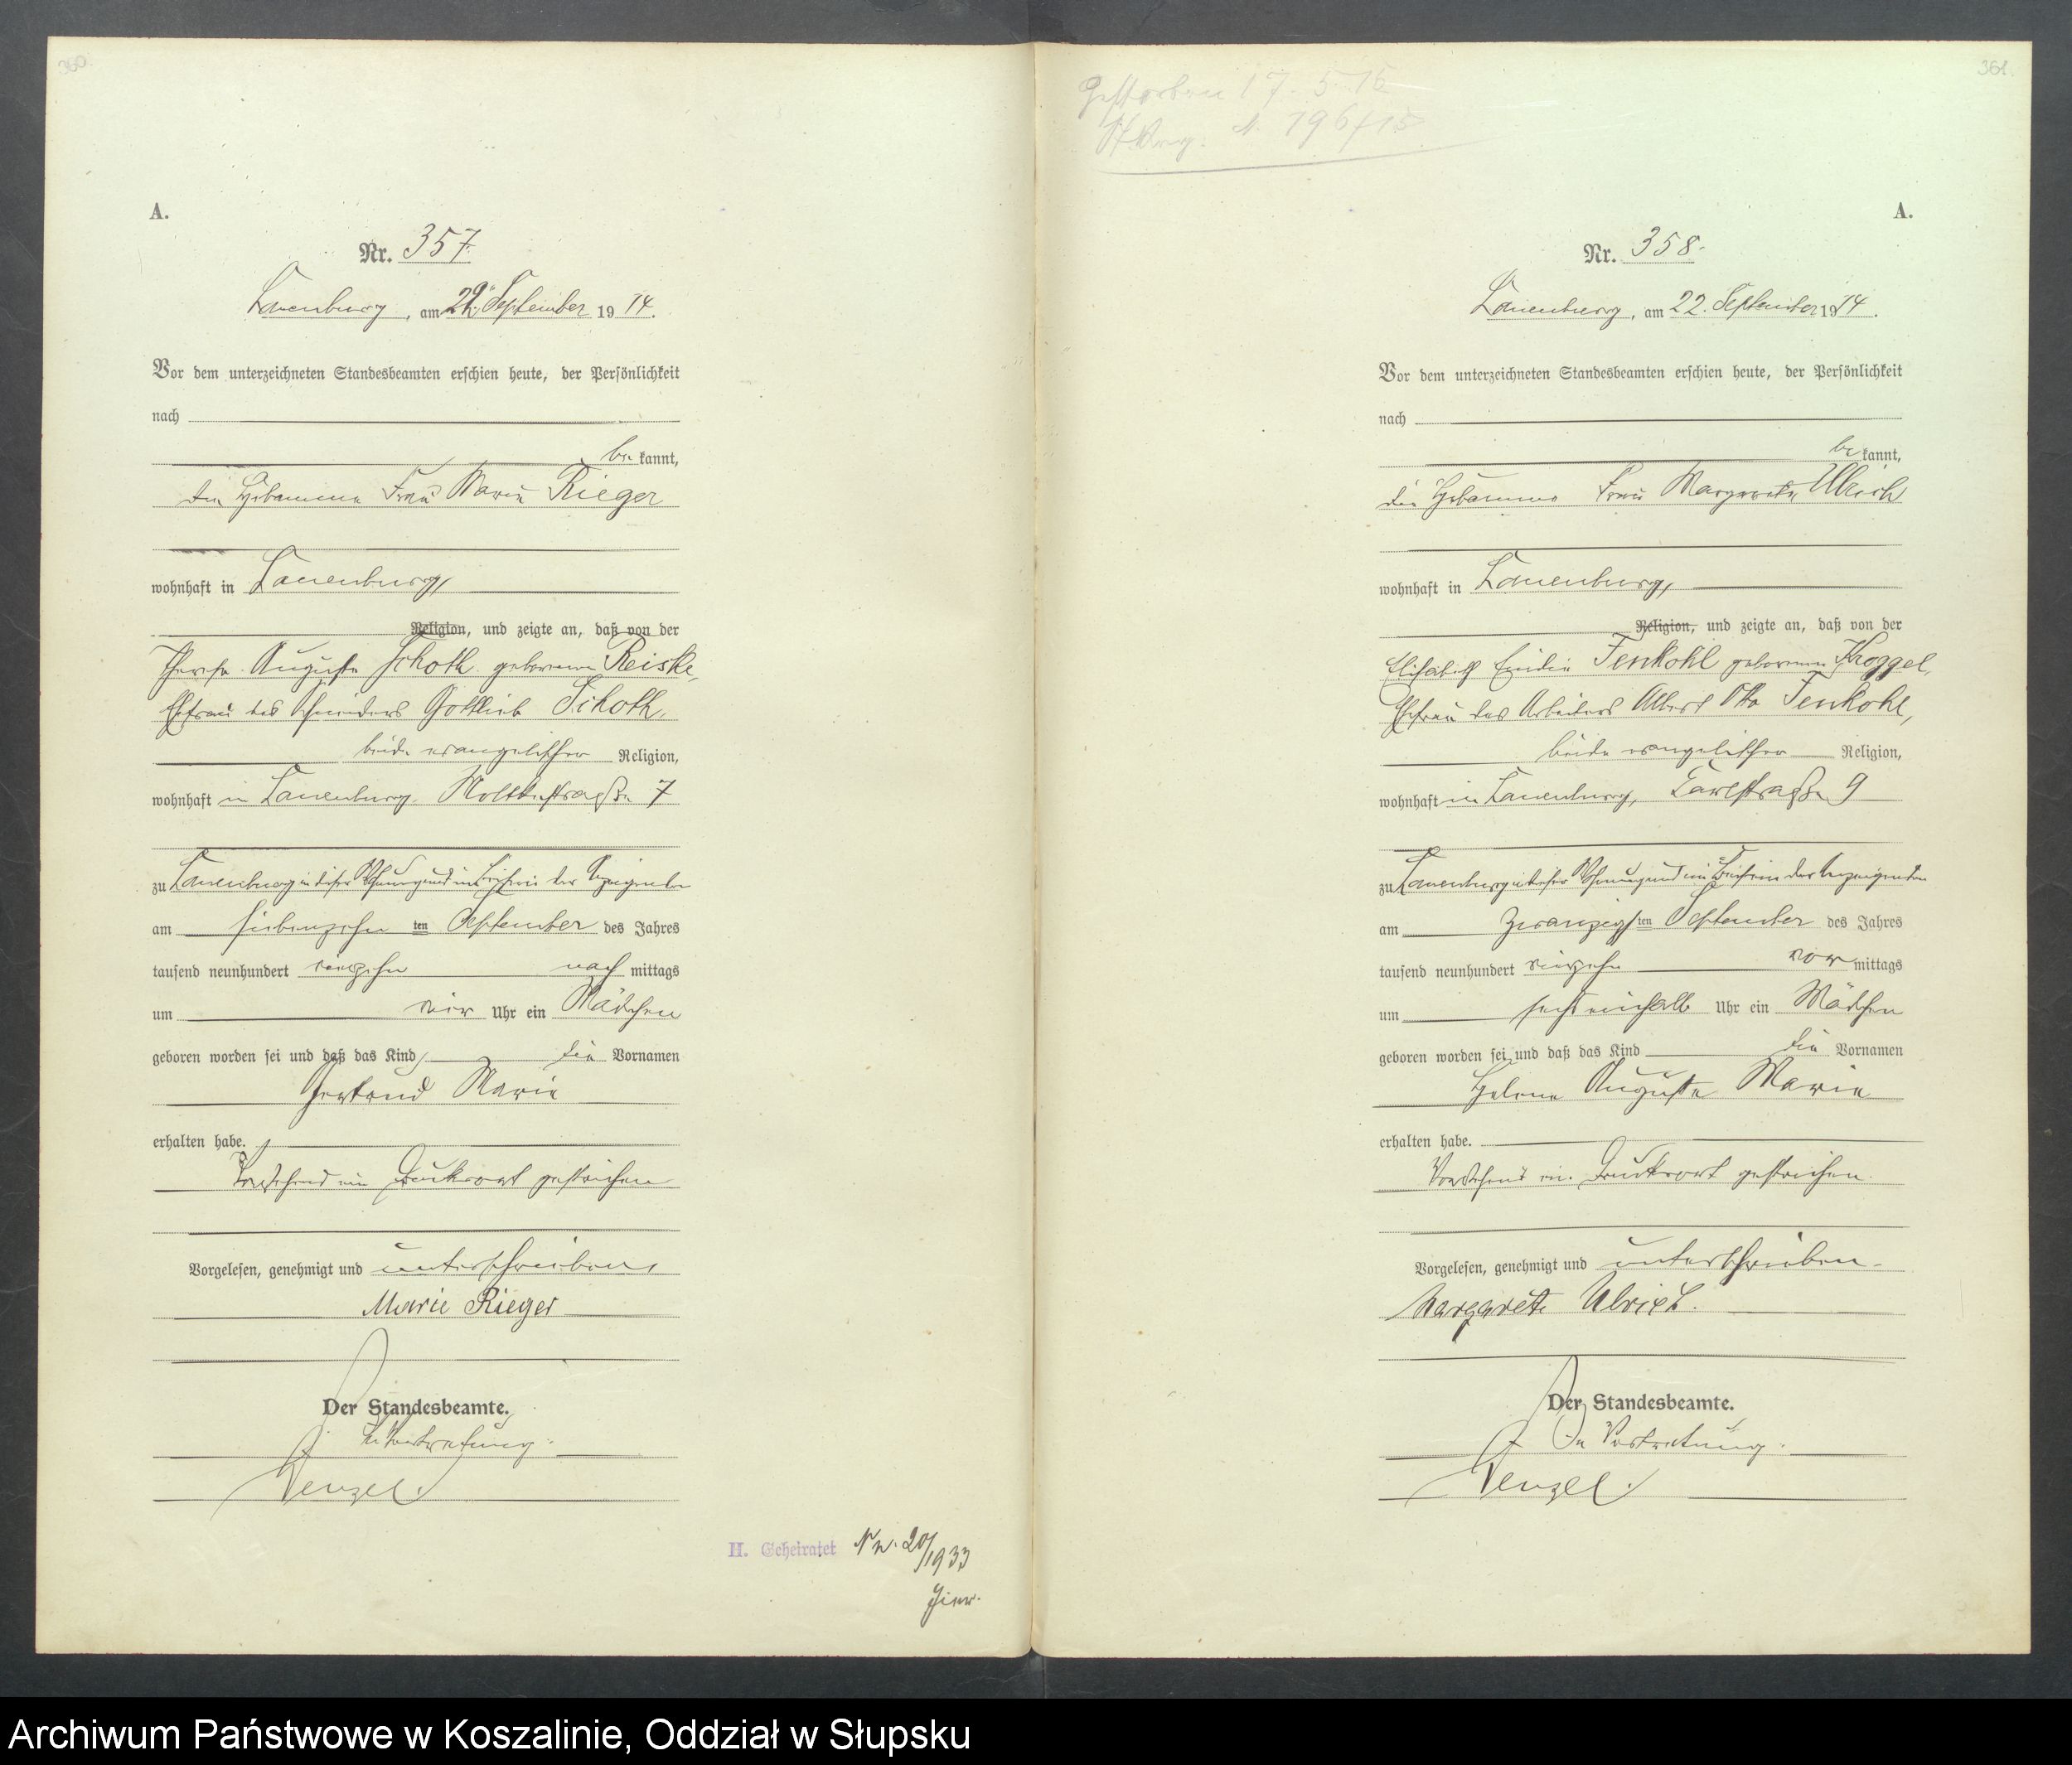 360.
A.
Nr. 357.
Lauenburg, am 22. September 19 14.
Vor dem unterzeichneten Standesbeamten erschien heute, der Persönlichkeit
nach
be kannt,
die Hebamme Frau Marie Rieger
wohnhaft in Lauenburg,
Religion, und zeigte an, daß von der
Therese Auguste Schoth geborenen Reiske,
Ehefrau des Gottlieb Schoth,
beide evangelischer Religion,
wohnhaft in Lauenburg, Moltkestraße 7
zu Lauenburg in dieser Wohnung und im Beisein der Anzeigenden
am siebenzehn ten September des Jahres
tausend neunhundert vierzehn nach mittags
um vier Uhr ein Mädchen
geboren worden sei und daß das Kind die Vornamen
Gertrud Marie
erhalten habe.
Vorstehend ein Druckwort gestrichen
Vorgelesen, genehmigt und unterschrieben,
Marie Rieger
Der Standesbeamte.
In Vertretung.
Wenzel.
H. Geheiratet Nr. 20/1933
hier.
361.
Gestorben 17. 5. 15
N. 196/15
A.
Nr. 358.
Lauenburg, am 22. September 19 14.
Vor dem unterzeichneten Standesbeamten erschien heute, der Persönlichkeit
nach
be kannt,
die Hebamme Frau Margarete Ulrich
wohnhaft in Lauenburg,
Religion, und zeigte an, daß von der
Elisabeth Emilie Tenkohl geborenen Kroggel,
Ehefrau des Arbeiters Albert Otto Tenkohl,
beide evangelischer Religion,
wohnhaft in Lauenburg, Carlstraße 9
zu Lauenburg in dieser Wohnung und im Beisein der Anzeigenden
am zwanzigsten ten September des Jahres
tausend neunhundert vierzehn vor mittags
um sechseinhalb Uhr ein Mädchen
geboren worden sei und daß das Kind die Vornamen
Helene Auguste Marie
erhalten habe.
Vorstehend ein Druckwort gestrichen.
Vorgelesen, genehmigt und unterschrieben
Margarete Ulrich.
Der Standesbeamte.
In Vertretung.
Wenzel.
Archiwum Państwowe w Koszalinie, Oddział w Słupsku